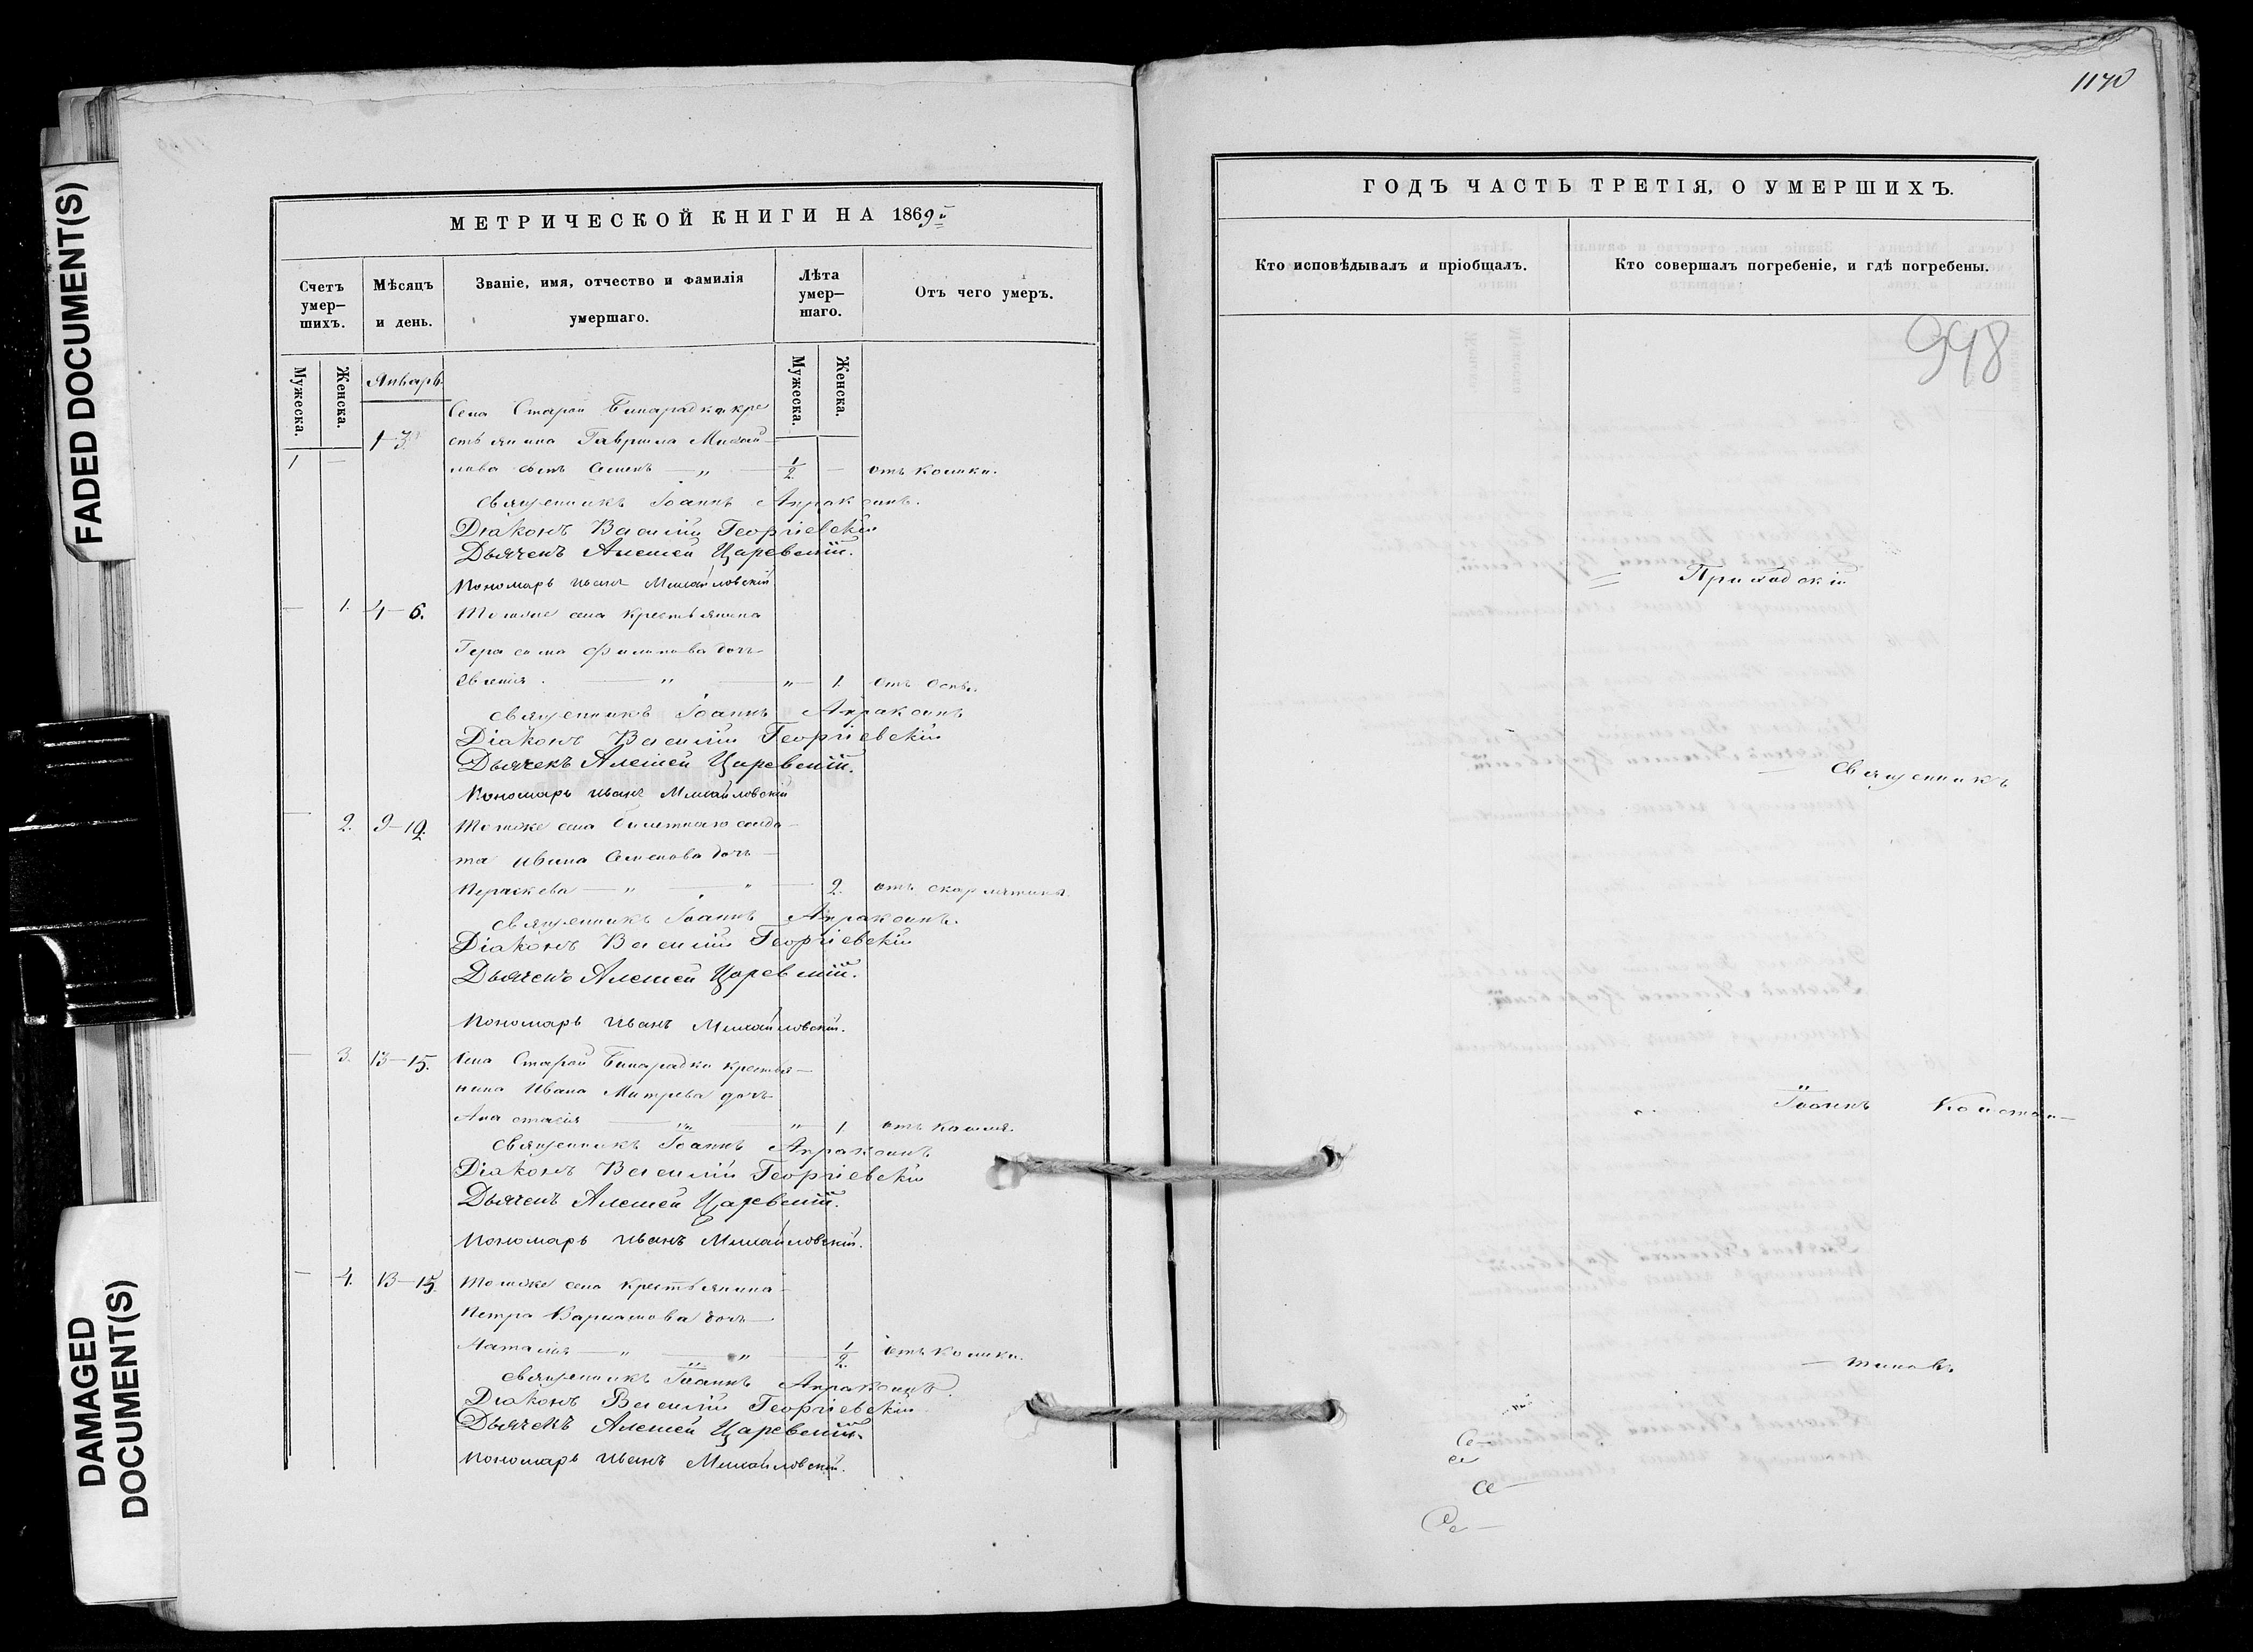 FADED DOCUMENT(S)
DAMAGED
DOCUMENT(S)
МЕТРИЧЕСКОЙ КНИГИ НА 1869й
Счетъ умер-шихъ.
Мѣсяцъ и день.
Званіе, имя, отчество и фамилія умершаго.
Лѣта умер-шаго.
Отъ чего умеръ.
Мужеска.
Женска.
Январь.
Мужеска.
Женска.
Села Старой Бинарадки кре
1-3 стьянина Гаврила Михай
1 — лова сынъ Семенъ — „ — 1/2 — отъ колики.
Священникъ Іоаннъ Апраксинъ.
Діаконъ Василій Георгіевскій
Дьячекъ Алексей Царевскій.
Пономарь Иванъ Михайловскій
— 1. 4-6. Тогоже села крестьянина
Герасима Филипова дочь
Евгенія. — „ — „ — 1. отъ оспы.
Священникъ Іоаннъ Апраксинъ
Діаконъ Василій Георгіевскій
Дьячекъ Алексей Царевскій.
Пономарь Иванъ Михайловскій
— 2. 9-12. Тогоже села билетнаго солда-
та Ивана Семенова дочь —
Параскева — „ — „ — 2. отъ скарлатины.
Священникъ Іоаннъ Апраксинъ.
Діаконъ Василій Георгіевскій
Дьячекъ Алексей Царевскій.
Пономарь Иванъ Михайловскій.
— 3. 13-15. Села Старой Бинарадки крестья-
нина Ивана Митрева дочь
Анастасія — „ — „ — 1 отъ кашля.
Священникъ Іоаннъ Апраксинъ
Діаконъ Василій Георгіевскій
Дьячекъ Алексей Царевскій.
Пономарь Иванъ Михайловскій.
— 4. 13-15. Тогоже села крестьянина
Петра Варламова дочь —
Наталія — „ — „ — 1/2. отъ колики.
Священникъ Іоаннъ Апраксинъ.
Діаконъ Василій Георгіевскій
Дьячекъ Алексей Царевскій.
Пономарь Иванъ Михайловскій.
1170
ГОДЪ ЧАСТЬ ТРЕТІЯ, О УМЕРШИХЪ.
Кто исповѣдывалъ и пріобщалъ.
Кто совершалъ погребеніе, и гдѣ погребены.
998
Приходскій
— Священникъ
Іоаннъ Констан—
— тиновъ
Се—
се
се—
Се—